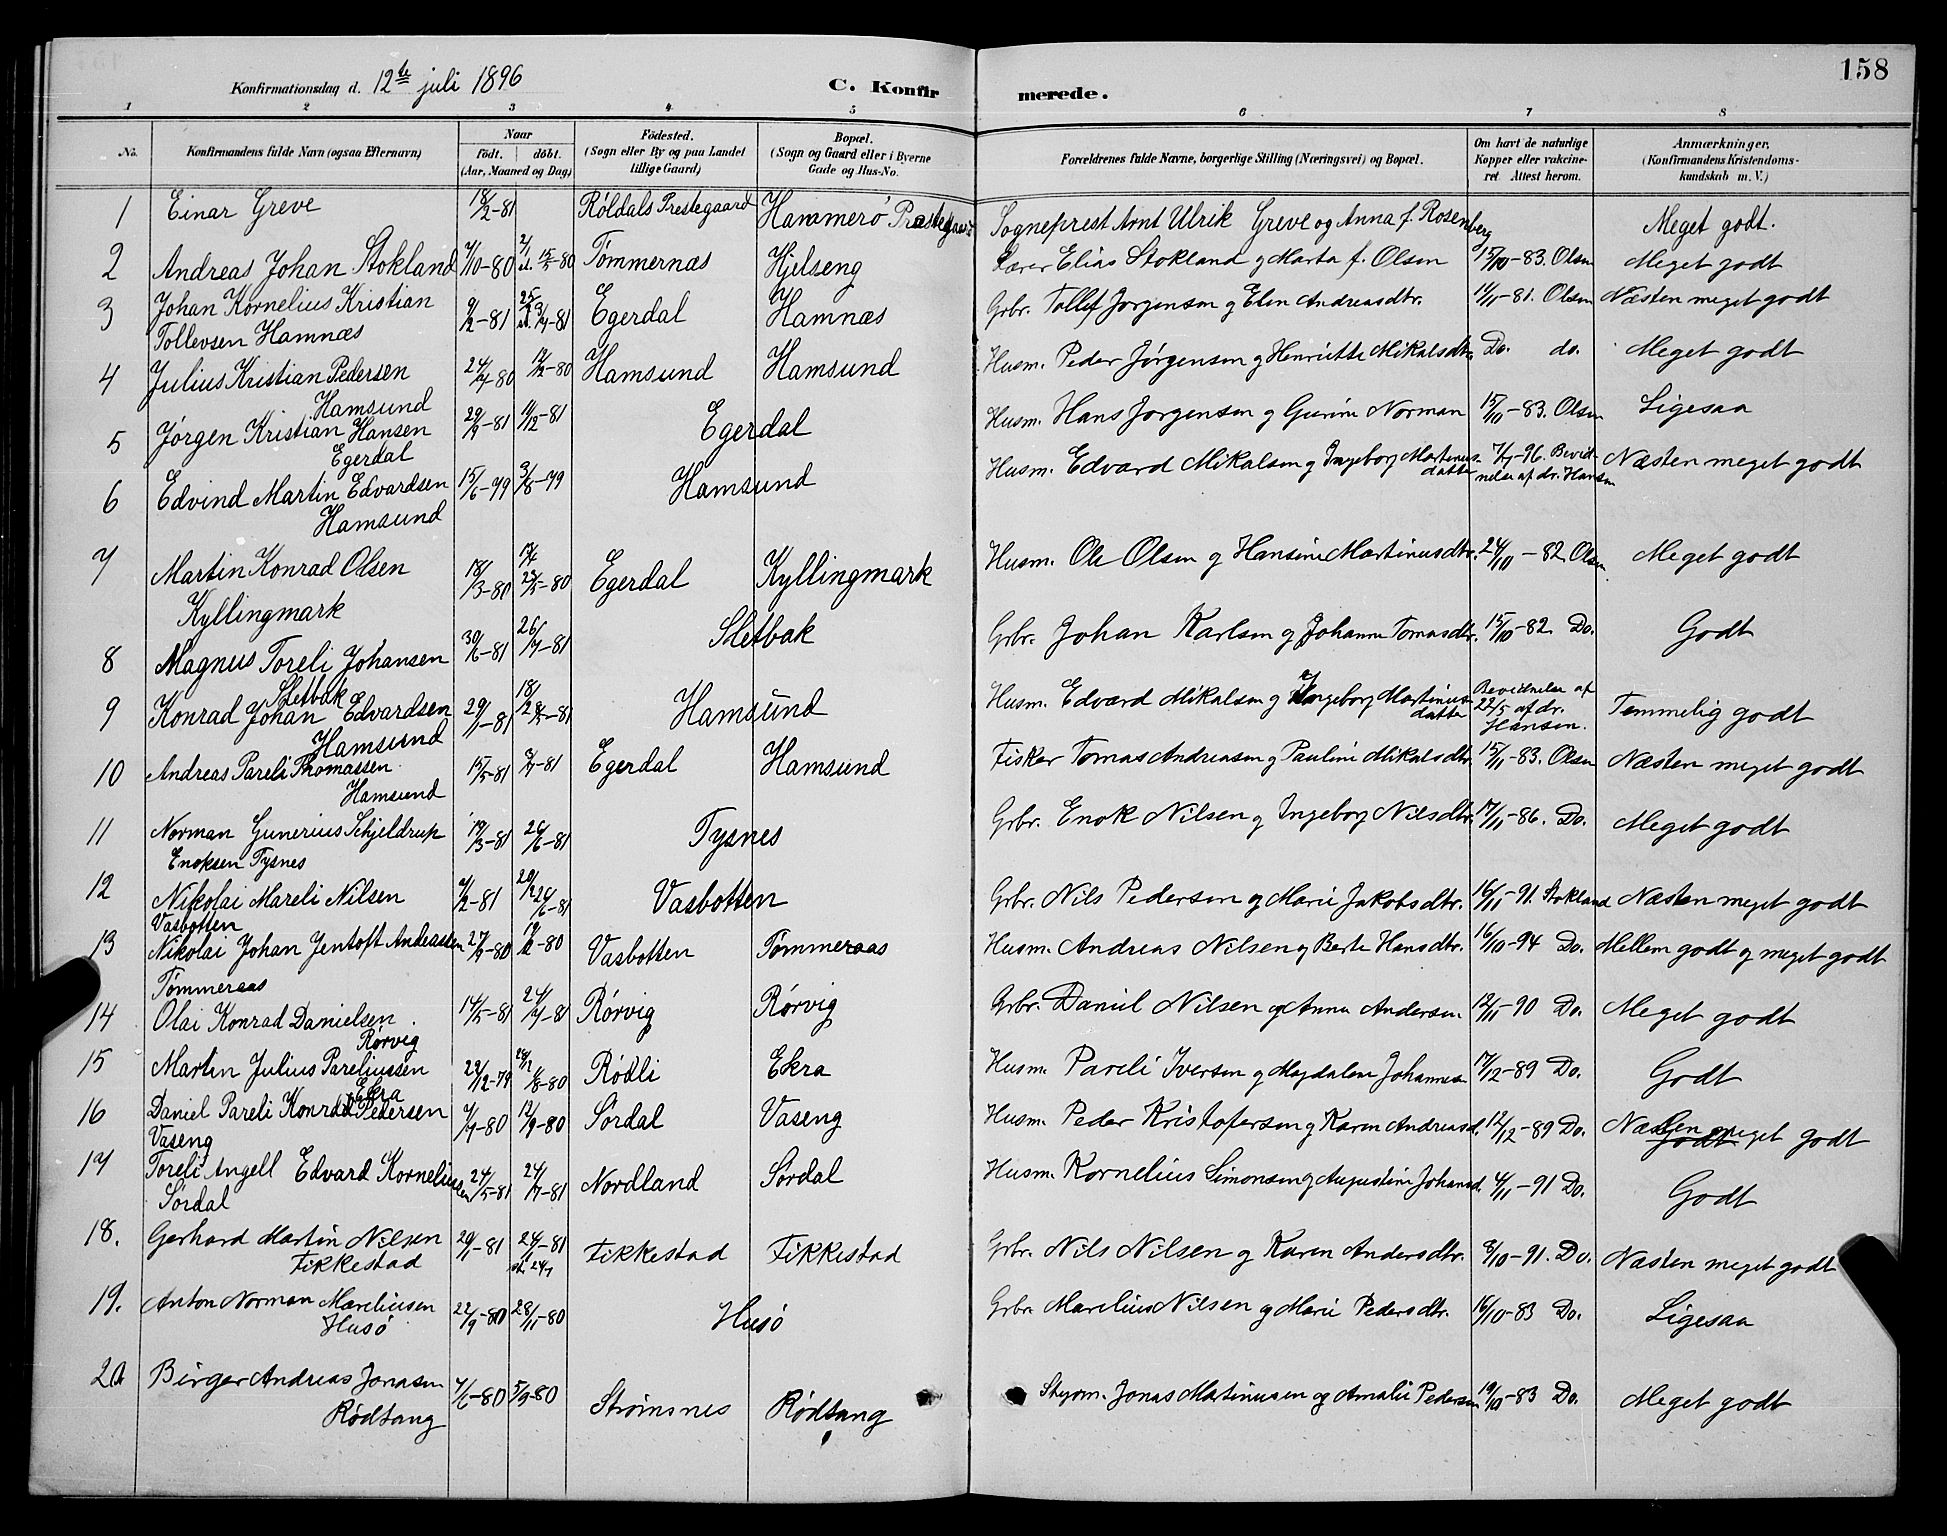 158
Konfirmationsdag d. 12te juli 1896 C. Konfirmerede.
1 2 3 4 5 6 7 8
No. Konfirmandens fulde Navn (ogsaa Efternavn) Naar født. døbt. (Aar, Maaned og Dag) Fødested. (Sogn eller By og paa Landet tillige Gaard) Bopæl. (Sogn og Gaard eller i Byerne Gade og Hus-No. Forældrenes fulde Navne, borgerlige Stilling (Næringsvei) og Bopæl. Om havt de naturlige Kopper eller vakcineret. Attest herom. Anmærkninger, (Konfirmandens Kristendomskundskab m. V.)
1 Einar Greve 18/2-81 Røldals Prestegaard Hammerø Præstegaard Sogneprest Arnt Ulrik Greve og Anna f. Rosenberg Meget godt.
2 Andreas Johan Stokland 7/10-80 Tømmernæs Hjelseng Lærer Elias Stokland og Marta f. Olsen 15/10-83. Olsen Meget godt
3 Johan Kornelius Kristian 9/2-81 Egerdal Hamnæs Grbr. Tollef Jørgensen og Elen Andreasdtr. 14/11-81. Olsen Næsten meget godt
Tollevsen Hamnæs
4 Julius Kristian Pedersen 24/7-80 12/12-80 Hamsund Hamsund Husm. Peder Jørgensen og Henriette Mikalsdtr. Do. do. Meget godt
Hamsund
5 Jørgen Kristian Hansen 29/9-81 11/12-81 Egerdal Husm. Hans Jørgensen og Gurine Norman 15/11-83. Olsen Ligesaa
Egerdal
6 Edvind Martin Edvardsen 15/6-79 3/8-79 Hamsund Husm. Edvard Mikalsen og Ingeborg Martinusdatter 7/7-96. Bevidnelse af dr. Hansen Næsten meget godt
Hamsund
7 Martin Konrad Olsen 18/3-80 Egerdal Kyllingmark Husm. Ole Olsen og Hansine Martinusdtr. 24/10-82. Olsen Meget godt
Kyllingmark
8 Magnus Toreli Johansen 30/6-81 26/7-81 Sletbak Grbr. Johan Karlsen og Johanna Tomasdtr. 15/10-82 Do. Godt
Sletbak
9 Konrad Johan Edvardsen 29/1-81 Hamsund Husm. Edvard Mikalsen og Ingeborg Martinusdatter Bevidnelse af 22/5 af dr. Hansen. Temmelig godt
Hamsund
10 Andreas Pareli Thomassen 15/5-81 Egerdal Hamsund Fisker Tomas Andreasen og Pauline Mikalsdtr. 15/11-83. Olsen Næsten meget godt
Hamsund
11 Norman Gunerius Schjeldrup 19/3-81 26/6-81 Tysnes Grbr. Enok Nilsen og Ingeborg Nilsdtr. 17/11-86. Do. Meget godt
Enoksen Tysnes
12 Nikolai Mareli Nilsen 7/2-81 Vasbotten Grbr. Nils Pedersen og Marie Jakobsdtr. 16/11-91. Stokland Næsten meget godt
Vasbotten
13 Nikolai Johan Jentoft Andreassen 27/9-80 Vasbotten Tømmeraas Husm. Andreas Nilsen og Berte Hansdtr. 16/10-94 Do. Mellem godt og meget godt
Tømmeraas
14 Olai Konrad Danielsen 14/5-81 24/7-81 Rørvig Rørvig Grbr. Daniel Nilsen og Anna Andersen 12/11-90 Do. Meget godt
Rørvig
15 Martin Julius Pareliussen 22/12-79 Rødli Ekra Husm. Pareli Iversen og Magdalene Johannesen 17/12-89 Do. Godt
Ekra
16 Daniel Pareli Konrad Pedersen 7/7-80 12/9-80 Sørdal Vaseng Husm. Peder Kristofersen og Karen Andreasd. 12/12-89 Do. Næsten meget godt
Vaseng
17 Toreli Angell Edvard Korneliussen 24/5-81 24/7-81 Nordland Sørdal Husm. Kornelius Simonsen og Augustine Johansd. 4/11-91 Do. Godt
Sørdal
18. Gerhard Martin Nilsen 20/1-81 Fikkestad Fikkestad Grbr. Nils Nilsen og Karen Andersdtr. 8/10-91. Do. Næsten meget godt
Fikkestad
19. Anton Norman Mareliusen 22/9-80 28/11-80 Husø Grbr. Marelius Nilsen og Marie Pedersdtr. 16/10-83 Do. Ligesaa
Husø
20 Birger Andreas Jonasen 7/6-80 5/9-80 Strømsnes Rødtang Styrm. Jonas Martinusen og Amalie Pedersen 19/10-83 Do. Meget godt
Rødtang